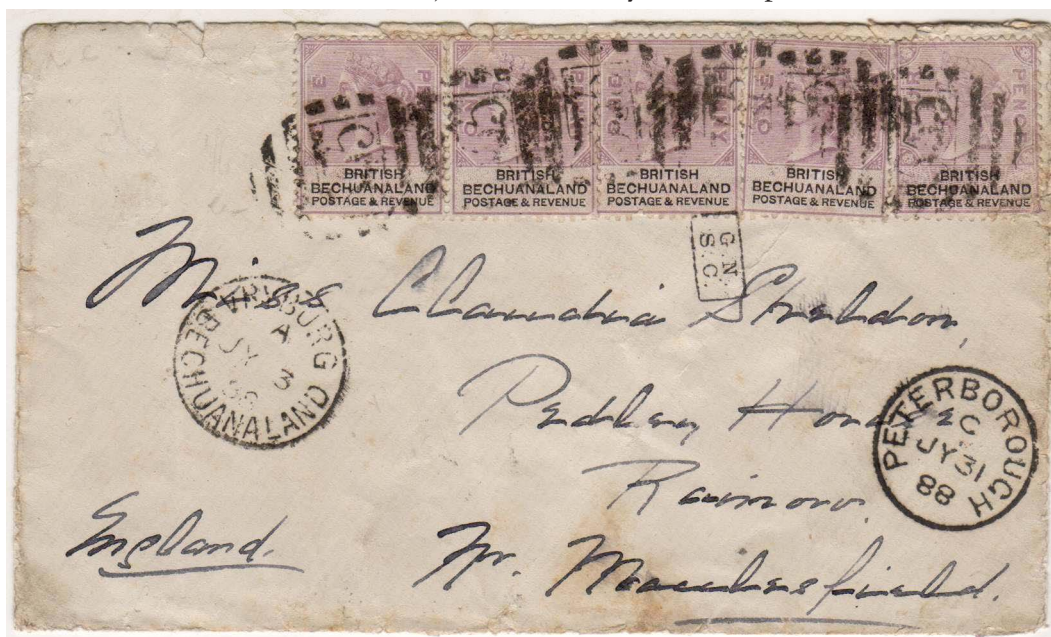 BRITISH BECHUANALAND POSTAGE & REVENUE
BRITISH BECHUANALAND POSTAGE & REVENUE
BRITISH BECHUANALAND POSTAGE & REVENUE
BRITISH BECHUANALAND POSTAGE & REVENUE
BRITISH BECHUANALAND POSTAGE & REVENUE
G.N.
S.C.
Miss Claudia Sheldon,
Pedley House
Rainow
Nr. Macclesfield.
England.
VRYBURG BECHUANALAND
A
JY 3
PETERBOROUGH
C
JY 31
88